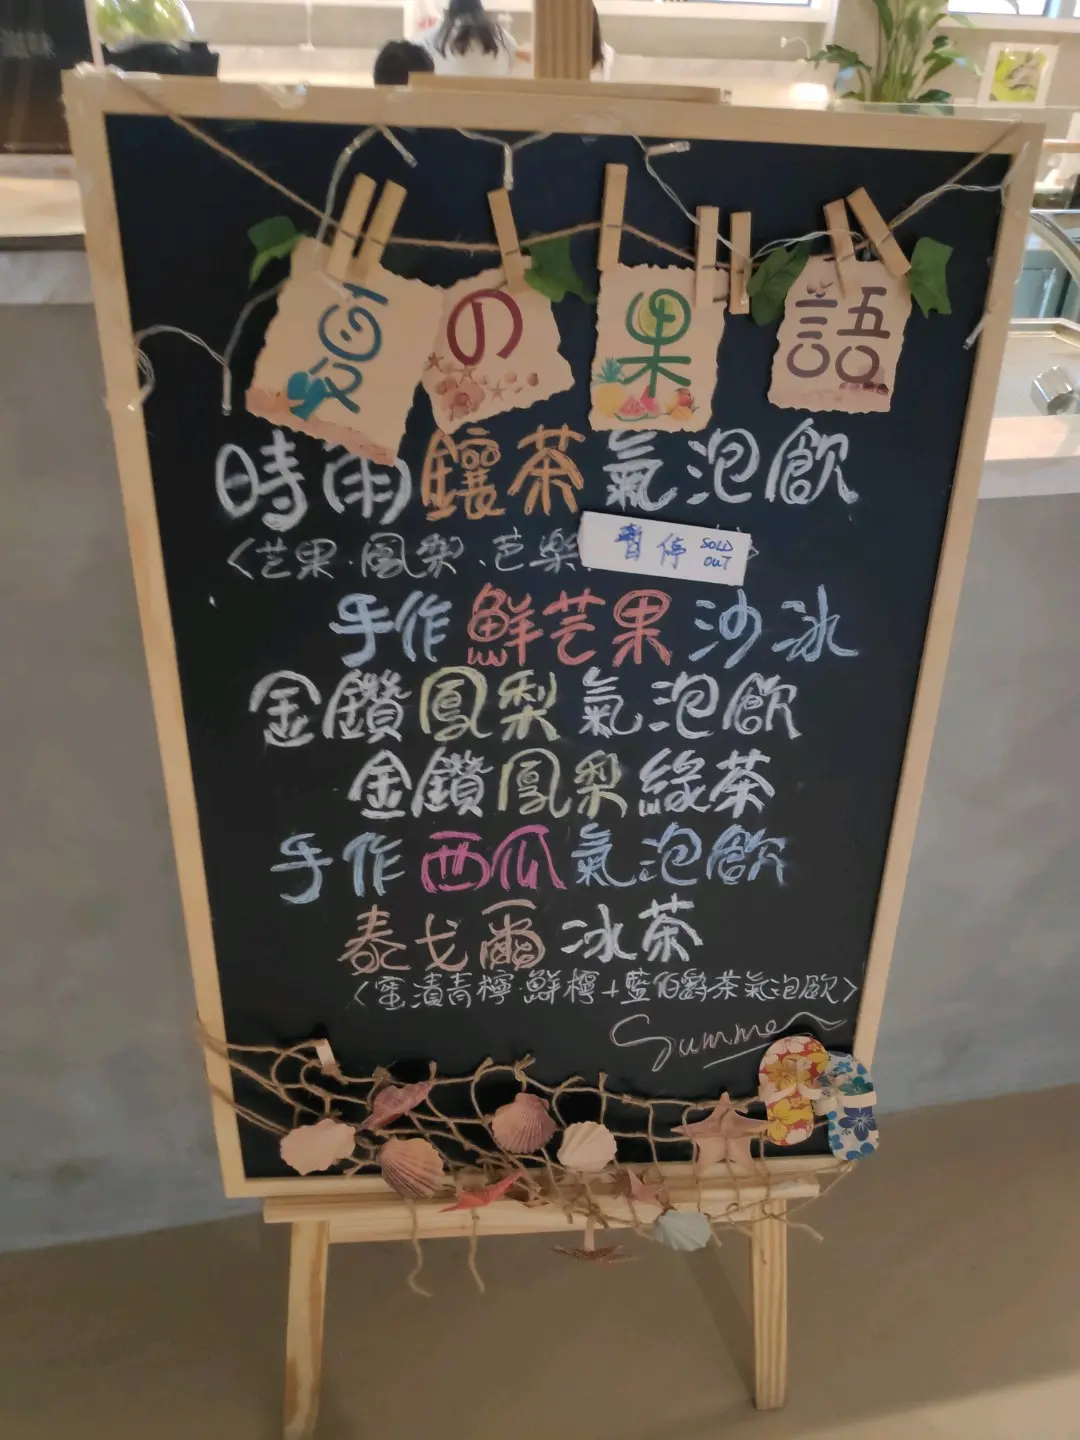 夏の果語
時雨鑲茶氣泡飲
<芒果.鳳梨.芭樂
暫停 SOLD OUT
手作鮮芒果沙冰
金鑽鳳梨氣泡飲
金鑽鳳梨綠茶
手作西瓜氣泡飲
泰戈爾冰茶
<蜜漬青檸.鮮檸+藍伯爵茶氣泡飲>
Summer